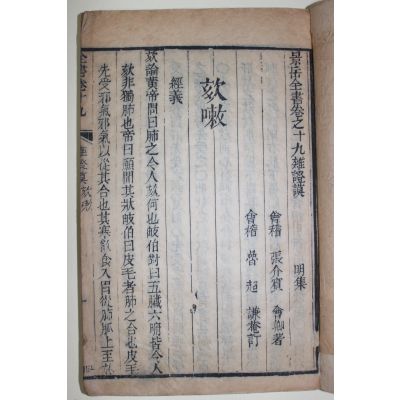 景岳全書卷之十九雜證謨 明集
會稽 張介賓 會卿著
會稽 魯超 謙菴訂
欬嗽
經義
欬論黃帝問曰肺之令人欬何也岐伯對曰五臟六腑皆令人
欬非獨肺也帝曰願聞其狀岐伯曰皮毛者肺之合也皮毛
先受邪氣邪氣以從其合也其寒飲食入胃從肺脈上至
全書卷十九
雜證謨 欬嗽